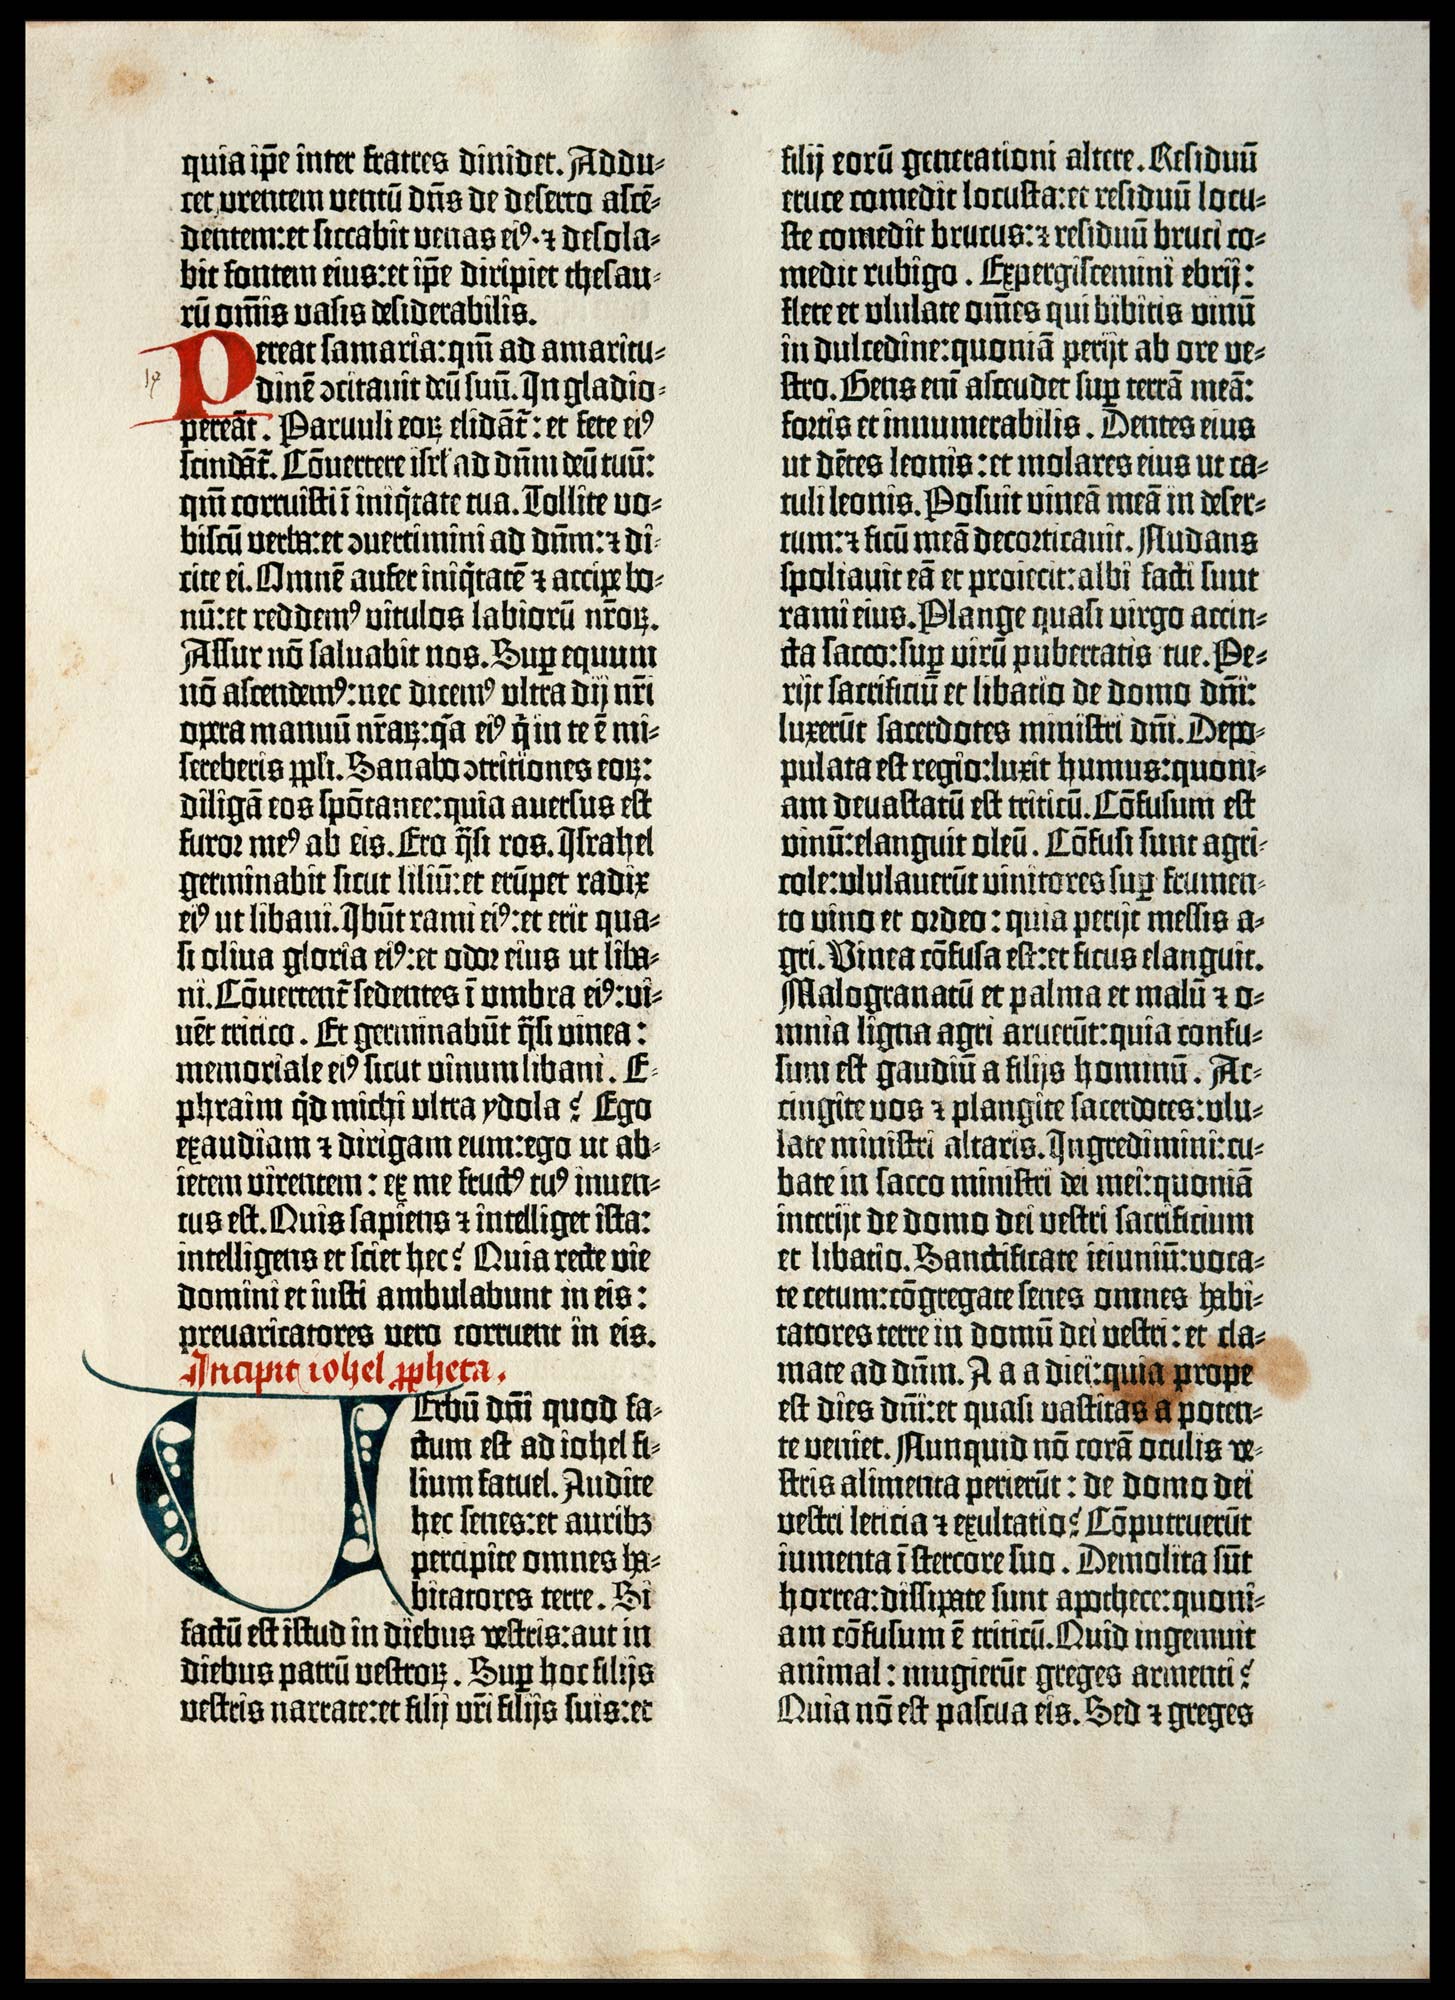 quia ip̄e inter fratres diuidet. Addu⸗
cet urentem ventū dn̄s de deserto ascē⸗
dentem:et siccabit venas eiꝰ·⁊ desola⸗
bit fontem eius:et ip̄e diripiet thesau⸗
rū om̄is vasis desiderabilis.
Pereat samaria:qm̄ ad amaritu⸗
dinē ↄcitauit deū suū. In gladio⸗
pereāt. Paruuli eoꝝ elidāt̄: et fete eiꝰ
scindāt̄. Cōuertere isrl̓ ad dn̄m deū tuū:
qm̄ corruisti ī iniq̄tate tua. Tollite vo⸗
biscū verba:et ↄuertimini ad dn̄m:⁊ di⸗
cite ei. Omnē aufer iniq̄tatē ⁊ accipe bo⸗
nū:et reddemꝰ vitulos labiorū nr̄oꝝ.
Assur nō saluabit nos. Suꝑ equum
nō ascendemꝰ:nec dicemꝰ vltra dij nr̄i
opera manuū nr̄aꝝ:q̄a eiꝰ q̄ in te ē mi⸗
sereberis ꝓpli. Sanabo ↄtritiones eoꝝ:
diligā eos spōtanee:quia auersus est
furor meꝰ ab eis. Ero q̄si ros. Israhel
germinabit sicut liliū:et erūpet radix
eiꝰ ut libani. Ibūt rami eiꝰ:et erit qua⸗
si oliua gloria eiꝰ:et odor eius ut liba⸗
ni. Cōuertent̄ sedentes ī vmbra eiꝰ:vi⸗
uēt tritico. Et germinabūt q̄si vinea:
memoriale eiꝰ sicut vinum libani. E⸗
phraim q̄d michi vltra ydola? Ego
exaudiam ⁊ dirigam eum:ego ut ab⸗
ietem virentem: ex me fructꝰ tuꝰ inuen⸗
tus est. Quis sapiens ⁊ intelliget ista:
intelligens et sciet hec? Quia recte vie
domini et iusti ambulabunt in eis:
preuaricatores vero corruent in eis.
Incipit iohel ꝓpheta.
Uerbū dn̄i quod fa⸗
ctum est ad iohel fi⸗
lium fatuel. Audite
hec senes:et auribꝫ
percipite omnes ha⸗
bitatores terre. Si
factū est istud in diebus vestris:aut in
diebus patrū vestroꝝ. Suꝑ hoc filijs
vestris narrate:et filij vr̄i filijs suis:et
filij eorū generationi altere. Residuū
eruce comedit locusta:et residuū locu⸗
ste comedit brucus:⁊ residuū bruci co⸗
medit rubigo. Expergiscemini ebrij:
flete et vlulate om̄es qui bibitis vinū
in dulcedine:quoniā perijt ab ore ve⸗
stro. Gens eni ascendet suꝑ terrā meā:
fortis et innumerabilis. Dentes eius
ut dētes leonis:et molares eius ut ca⸗
tuli leonis. Posuit vineā meā in deser⸗
tum:⁊ ficū meā decorticauit. Nudans
spoliauit eā et proiecit:albi facti sunt
rami eius. Plange quasi virgo accin⸗
cta sacco:suꝑ virū pubertatis tue. Pe⸗
rijt sacrificiū et libatio de domo dn̄i:
luxerūt sacerdotes ministri dn̄i. Depo⸗
pulata est regio:luxit humus:quoni⸗
am deuastatū est triticū. Cōfusum est
vinū:elanguit oleū. Cōfusi sunt agri⸗
cole:vlulauerūt vinitores suꝑ frumen⸗
to vino et ordeo: quia perijt messis a⸗
gri. Vinea cōfusa est:et ficus elanguit.
Malogranatū et palma et malū ⁊ o⸗
mnia ligna agri aruerūt:quia confu⸗
sum est gaudiū a filijs hominū. Ac⸗
cingite vos ⁊ plangite sacerdotes:vlu⸗
late ministri altaris. Ingredimini:cu⸗
bate in sacco ministri dei mei:quoniā
interijt de domo dei vestri sacrificium
et libatio. Sanctificate ieiuniū:voca⸗
te cetum:cōgregate senes omnes habi⸗
tatores terre in domū dei vestri: et cla⸗
mate ad dn̄m. A a a diei:quia prope
est dies dn̄i:et quasi vastitas a poten⸗
te veniet. Nunquid nō corā oculis ve⸗
stris alimenta perierūt: de domo dei
vestri leticia ⁊ exultatio? Cōputruerūt
iumenta ī stercore suo. Demolita sūt
horrea:dissipate sunt apothece:quoni⸗
am cōfusum ē triticū. Quid ingemuit
animal: mugierūt greges armenti?
Quia nō est pascua eis. Sed ⁊ greges